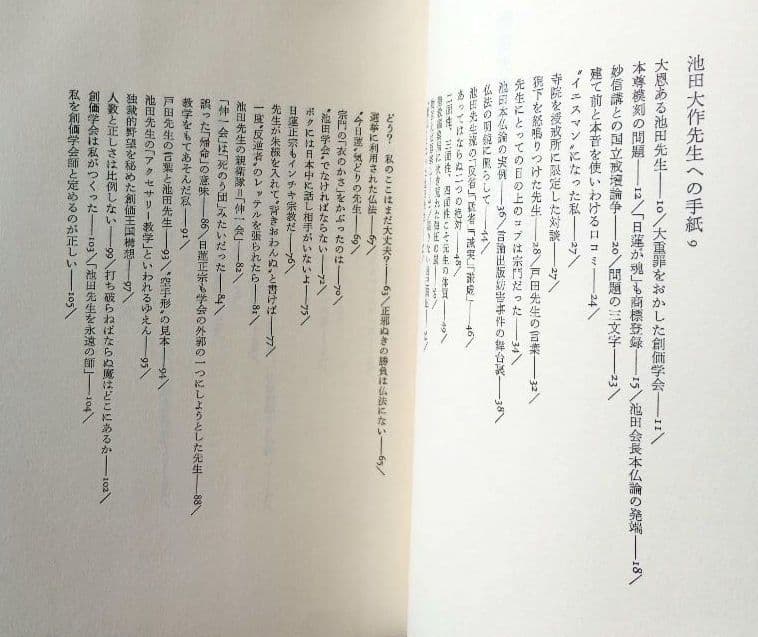 池田大作先生への手紙 9
大恩ある池田先生――10／大重罪をおかした創価学会――11／
本尊模刻の問題――12／「日蓮が魂」も商標登録――15／池田会長本仏論の発端――18／
妙信講との国立戒壇論争――20／問題の三文字――23／
建て前と本音を使いわけるロコミ――24／
“イエスマン”になった私――27／
寺院を授戒所に限定した対談――27／
猊下を怒鳴りつけた先生――28／戸田先生の言葉――32／
先生にとっての目の上のコブは宗門だった――34／
池田本仏論の実例――36／言論出版妨害事件の舞台裏――38／
仏法の明鏡に照らして――44／
池田先生流の「反省」「猛省」「誠実」「謙虚」――46／
あってはならぬ二つの絶対――48／
二面性、三面性、四面性こそ先生の体質――49／
どう？　私のここはまだ大丈夫？――63／正邪ぬきの勝負は仏法にない――65／
選挙に利用された仏法――67／
“今日蓮”気どりの先生――69／
宗門の「衣のかさ」をかぶったのは――70／
“池田学会”でなければならない――72／
ボクには日本中に話し相手がいないよ――75／
日蓮正宗もインチキ宗教だ――76／
先生が朱線を入れて“背きおわんぬ”と書けば――77／
一度“反逆者”のレッテルを張られたら――81／
池田先生の親衛隊＝「伸一会」――82／
「伸一会」は「死のう団」みたいだった――84／
誤った「帰命」の意味――86／日蓮正宗も学会の外郭の一つにしようとした先生――88／
教学をもてあそんだ私――91／
戸田先生の言葉と池田先生――93／“空手形”の見本――94／
池田先生の「アクセサリー教学」といわれるゆえん――95／
独裁的野望を秘めた創価王国構想――97／
人数と正しさは比例しない――99／打ち破らねばならぬ魔はどこにあるか――102／
創価学会は私がつくった――103／「池田先生を永遠の師」――104／
私を創価学会師と定めるのが正しい――105／